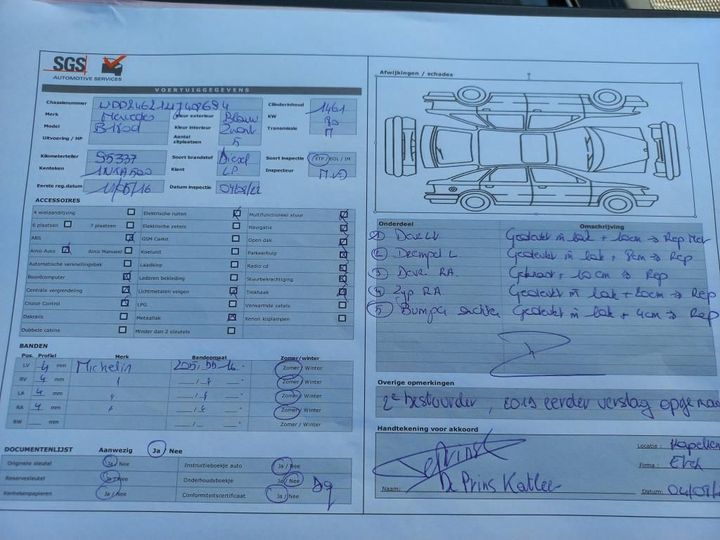 SGS
AUTOMOTIVE SERVICES
VOERTUIGGEGEVENS
Chassisnummer
Cilinderinhoud 1461
Merk Mercedes Kleur exterieur Blauw KW 80
Model B180d Kleur interieur Zwart Transmissie M
Uitvoering / HP Aantal zitplaatsen 5
Kilometerteller 95337 Soort brandstof Diesel Soort inspectie ETP / EOL / IM
Kenteken 1NKA500 Klant LP Inspecteur
Eerste reg.datum 11/05/16 Datum inspectie
ACCESSOIRES
4 wielaandrijving Elektrische ruiten Multifunctioneel stuur
6 plaatsen 7 plaatsen Elektrische zetels Navigatie
ABS GSM Carkit Open dak
Airco Auto Airco Manueel Koelunit Parkeerhulp
Automatische versnellingsbak Laadklep Radio cd
Boordcomputer Lederen bekleding Stuurbekrachtiging
Centrale vergrendeling Lichtmetalen velgen Trekhaak
Cruise Control LPG Verwarmde zetels
Dakrails Metaallak Xenon koplampen
Dubbele cabine Minder dan 2 sleutels
BANDEN
Pos. Profiel Merk Bandenmaat Zomer/winter
LV 4 mm Michelin 205/55-16 Zomer / Winter
RV 4 mm Zomer / Winter
LA 4 mm Zomer / Winter
RA 4 mm Zomer / Winter
RW mm Zomer / Winter
DOCUMENTENLIJST Aanwezig Ja / Nee
Originele sleutel Ja / Nee Instructieboekje auto Ja / Nee
Reservesleutel Ja / Nee Onderhoudsboekje Ja / Nee
Kentekenpapieren Ja / Nee Conformiteitscertificaat Ja / Nee
Afwijkingen / schades
Onderdeel Omschrijving
1) Deur LV Gedeukt in lak + 10cm → Rep
2) Dorpel L Gedeukt in lak + 8cm → Rep
3) Deur RA + 10 cm → Rep
4) Zyp RA Gedeukt in lak + 20cm → Rep
5) Bumper achter Gedeukt in lak + 4cm → Rep
Overige opmerkingen
2e bestuurder, 2019 eerder verslag
Handtekening voor akkoord
Locatie : Kapellen
Firma :
Naam: De Prins Datum: